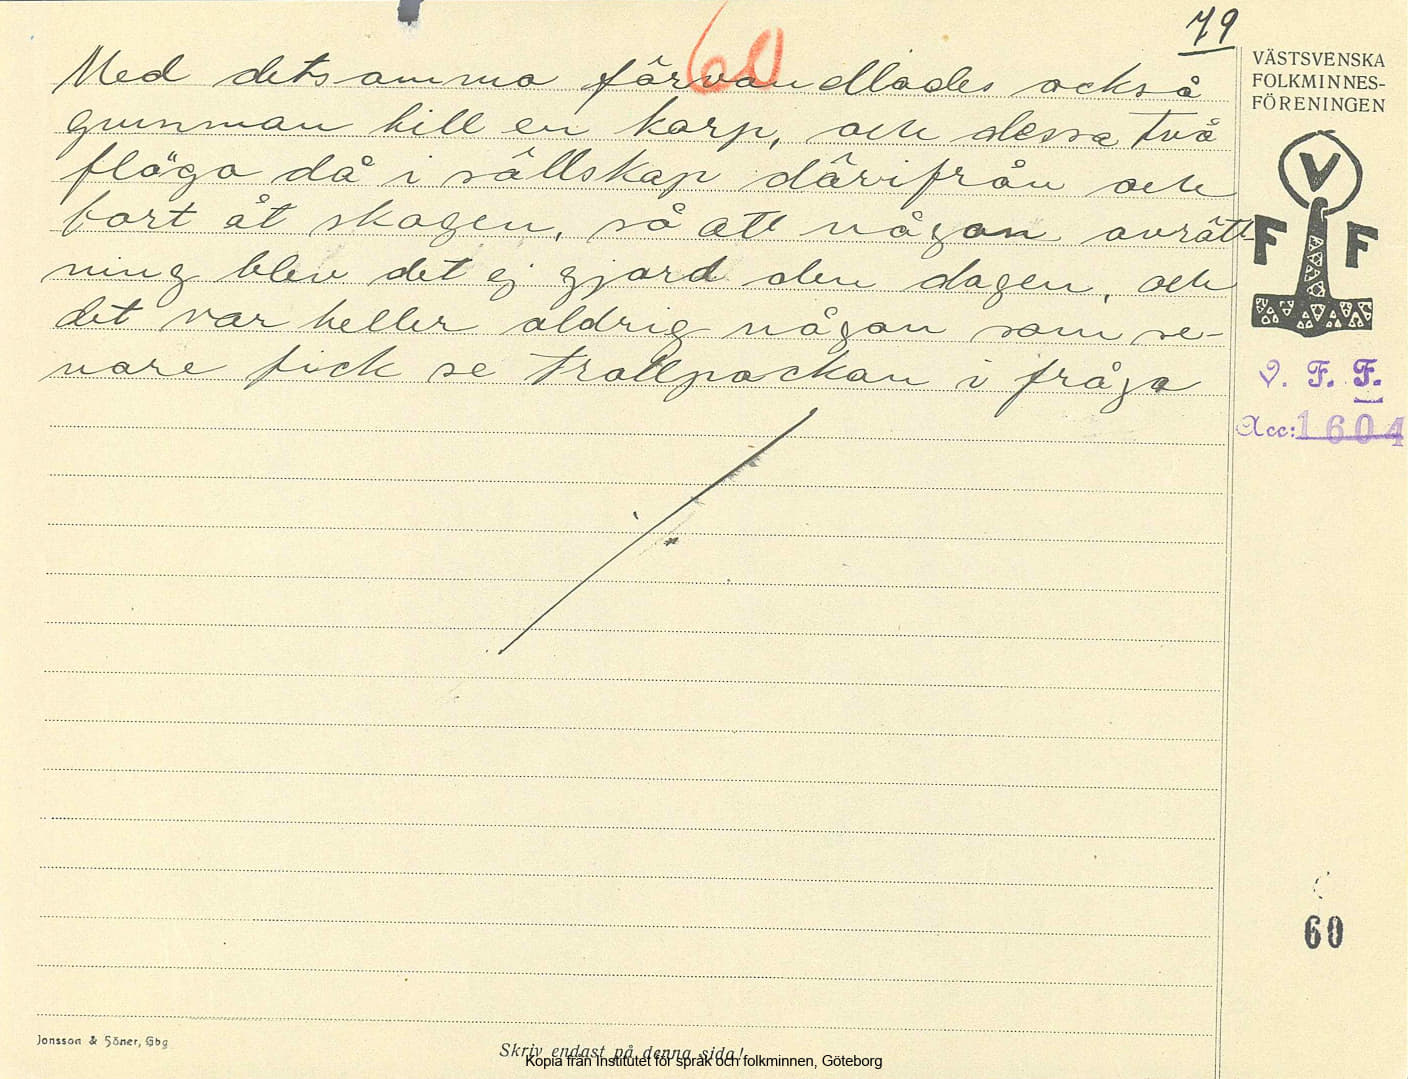 60
79
Med detsamma förvandlades också
gumman till en korp, och dessa två
flögo då i sällskap därifrån och
bort åt skogen, så att någon avrätt-
ning blev det ej gjord den dagen, och
det var heller aldrig någon som se-
nare fick se trollpackan i fråga
VÄSTSVENSKA
FOLKMINNES-
FÖRENINGEN
V
F F
V. F. F.
Acc: 1604
60
Jonsson & Söner, Gbg
Skriv endast på denna sida!
Kopia från Institutet för språk och folkminnen, Göteborg